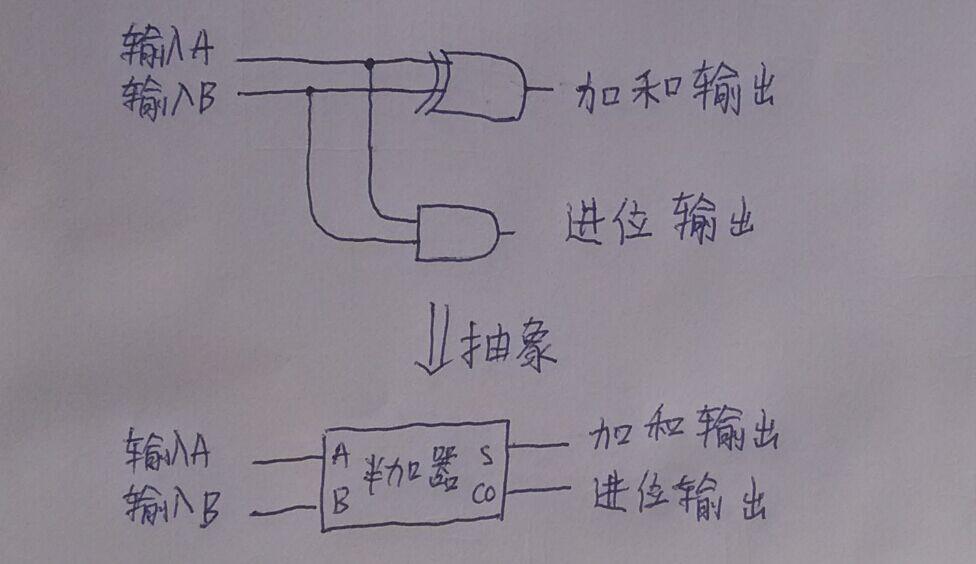 输入A
输入B
加和输出
进位输出
抽象
输入A
输入B
A
B
半加器
S
CO
加和输出
进位输出